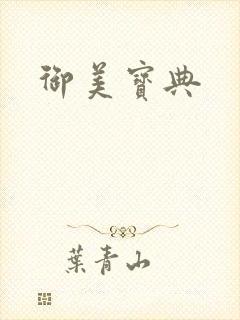 御美寶典
葉青山